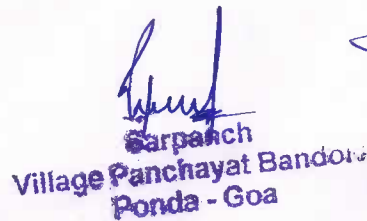 Sarpanch
Village Panchayat Bandora
Ponda - Goa